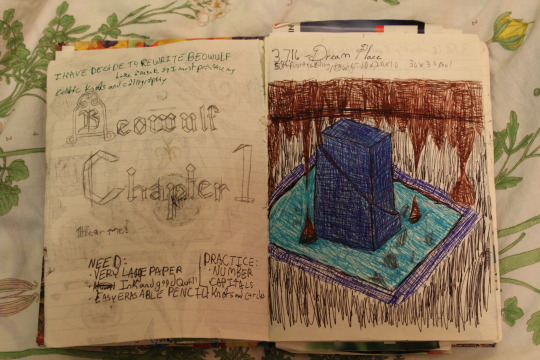 I HAVE DECIDE TO REWRITE BEOWULF
book so I must practice my
celtic knots and calligraphy
Beowulf
Chapter 1
Hear me!
NEED:
· VERY LARGE PAPER
· Ink and good Quill
· EASY ERASABLE PENCIL
PRACTICE:
· NUMBER
CAPITALS
· Knots and circles
2716 - Dream Place